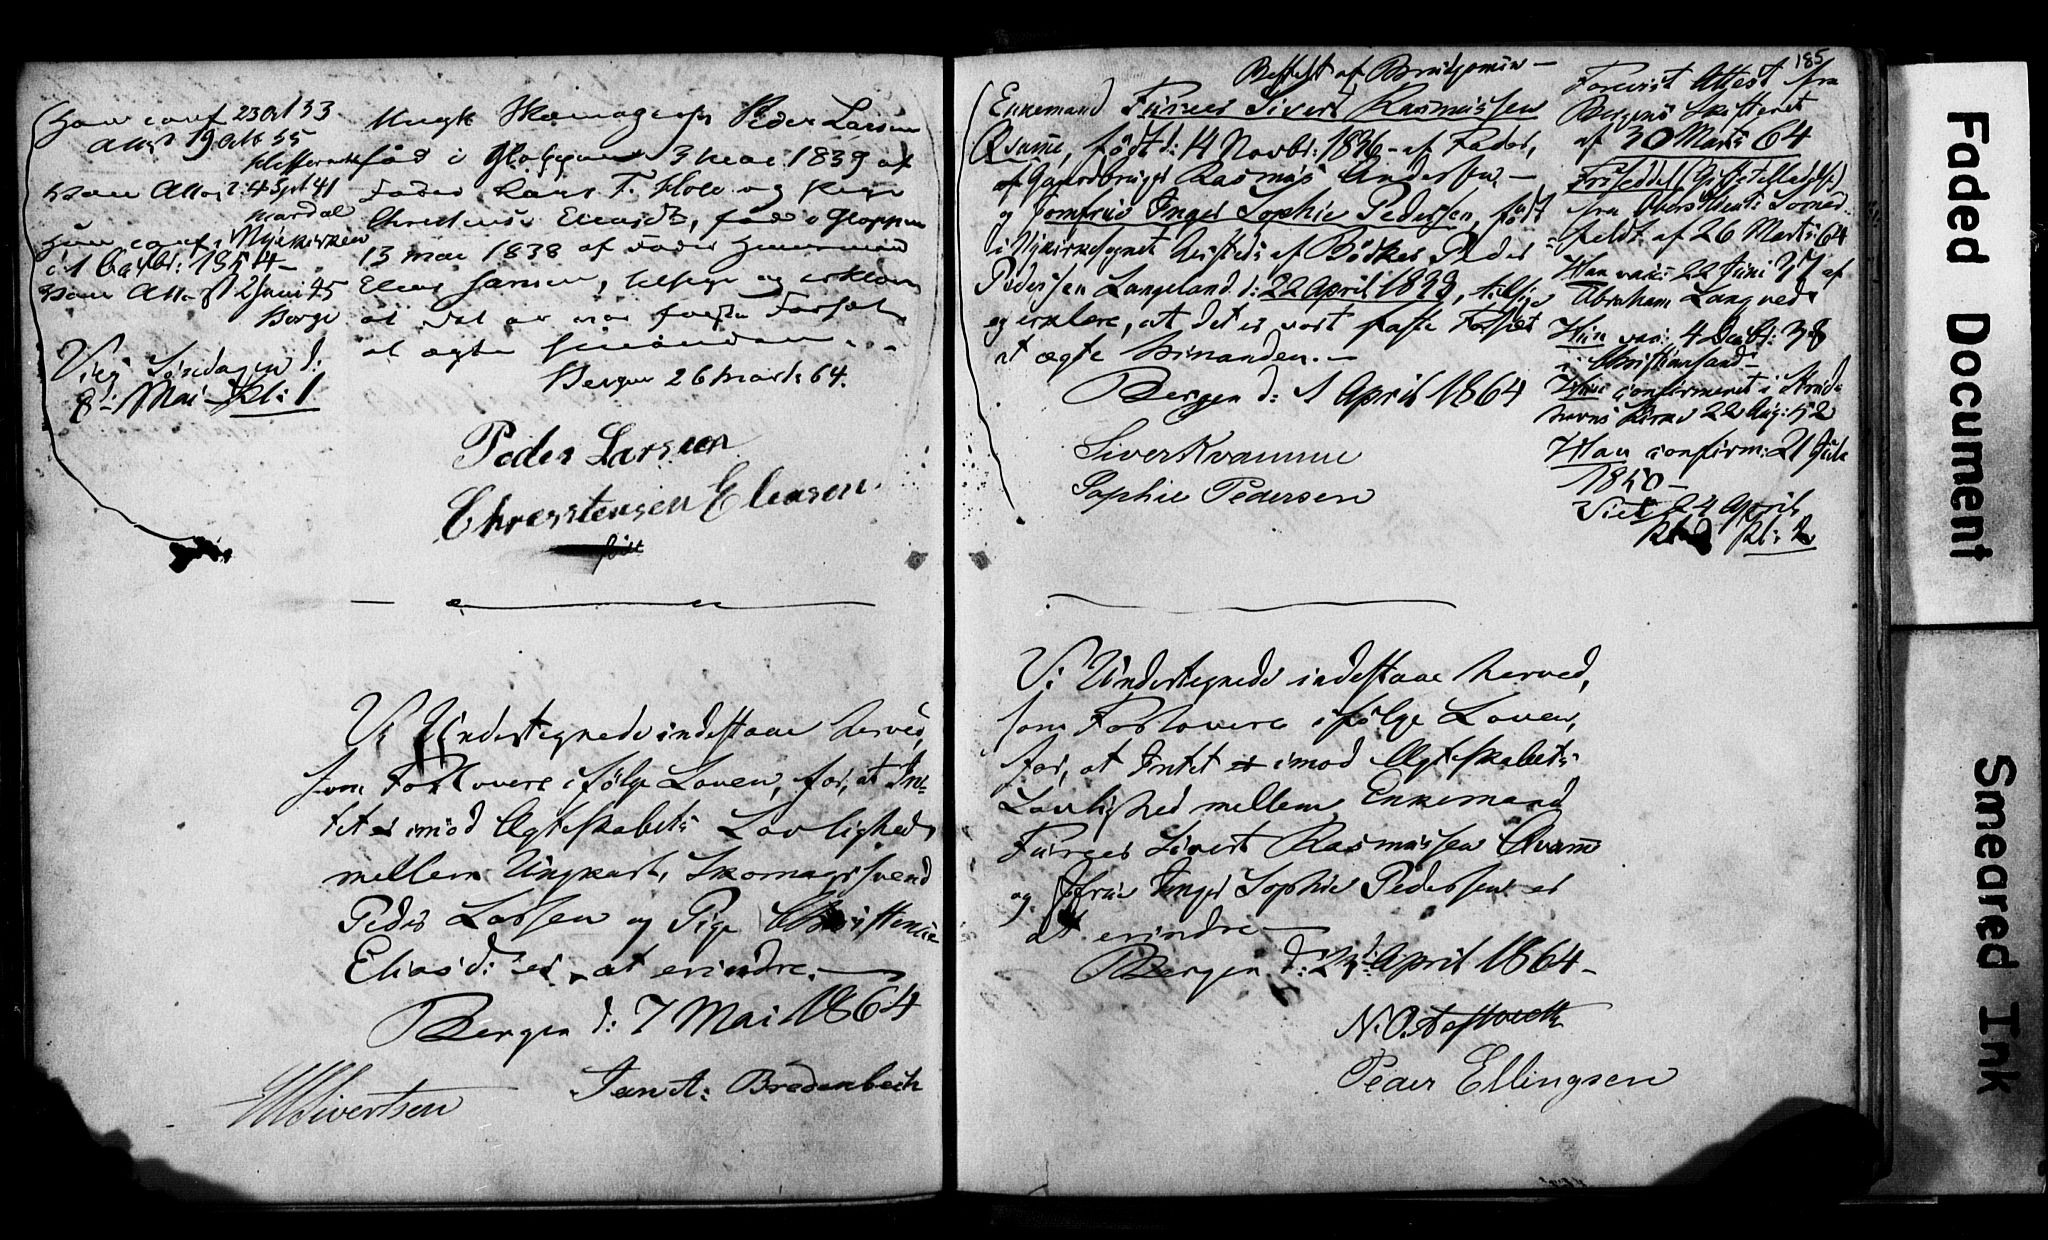 Han conf 23 Oct 53
Attst 19 Octb 55
Han Attest 4 Sept 41
Hun conf. Nykirken
i 1 Octbr: 1854 –
Hun Attest 2 Juni 45
Borge
Viet Søndagen d:
8: Mai Kl: 1
Ungk Skomagersv Peder Larsen
fød i Gloppen 3 mai 1839 af
Fader Lars T. Hole og Pige
Christense Eliasdt, fød i Gloppen
13 mai 1838 af Fader Huusmand
Elias Jansen, tilsige og erklære
at det er vor faste Forsæt
at ægte hinanden.
Bergen 26 Marts 64.
Peder Larsen
Chresstensen Eleasen.
født
Vi Undertegnede indestaae herved,
som Forlovere ifølge Loven, for, at In-
tet er imod Ægteskabets Lovlighed
mellem Ungkarl, Skomagersvend
Peder Larsen og Pige Christense
Eliasd: er at erindre.
Bergen d: 7 Mai 1864
Sivertsen
Jan A: Bredenbech
185
Bestilt af Brudgommen –
Enkemand Fureer Sivert Rasmussen
Qvamme, født d: 14 Novbr: 1836 – af Fader,
Gaardbruger Rasmus Andersen –
og Jomfrue Inger Sophie Pedersen, født
i Nykirkesognet hersteds af Bødker Peder
Pedersen Langeland d: 22 April 1838, tilsige
og erklære, at det er vort faste Forsæt
at ægte hinanden. –
Bergen d: 1 April 1864
Siver Kvamme
Sophie Pedersen
Forevist Attest fra
Bergens Skifteret
af 30 Marts 64
fra
af 26 Marts 64
Han vac: 22 Juni 37 af
Abraham Langved
Hun vac: 4 Decbr: 38
i Christiansand –
Hun confirmeret i
22 Aug: 52
Han confirm: 21
1850 –
Viet 24 April
Kl: 2
Vi Undertegnede indestaae herved,
som Forlovere ifølge Loven,
for, at Intet er imod Ægteskabets
Lovlighed mellem Enkemand
Fureer Sivert Rasmussen Qvamme
og Jfrue Inger Sophie Pedersen er
at erindre –
Bergen d: 23 April 1864 –
Peder Ellingsen
Faded Document
Smeared Ink